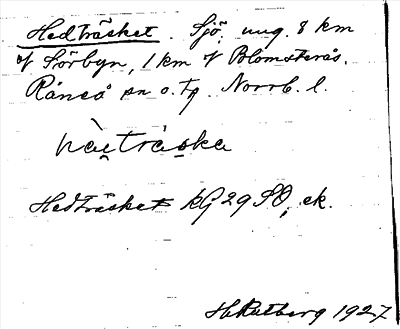 Hedträsket. Sjö, ung. 8 km
af Sörbyn, 1 km af Blomsterås.
Råneå sn o. tg Norrb. l.
Hedträsket kG 29 SO, ek.
H. Rutberg 1927